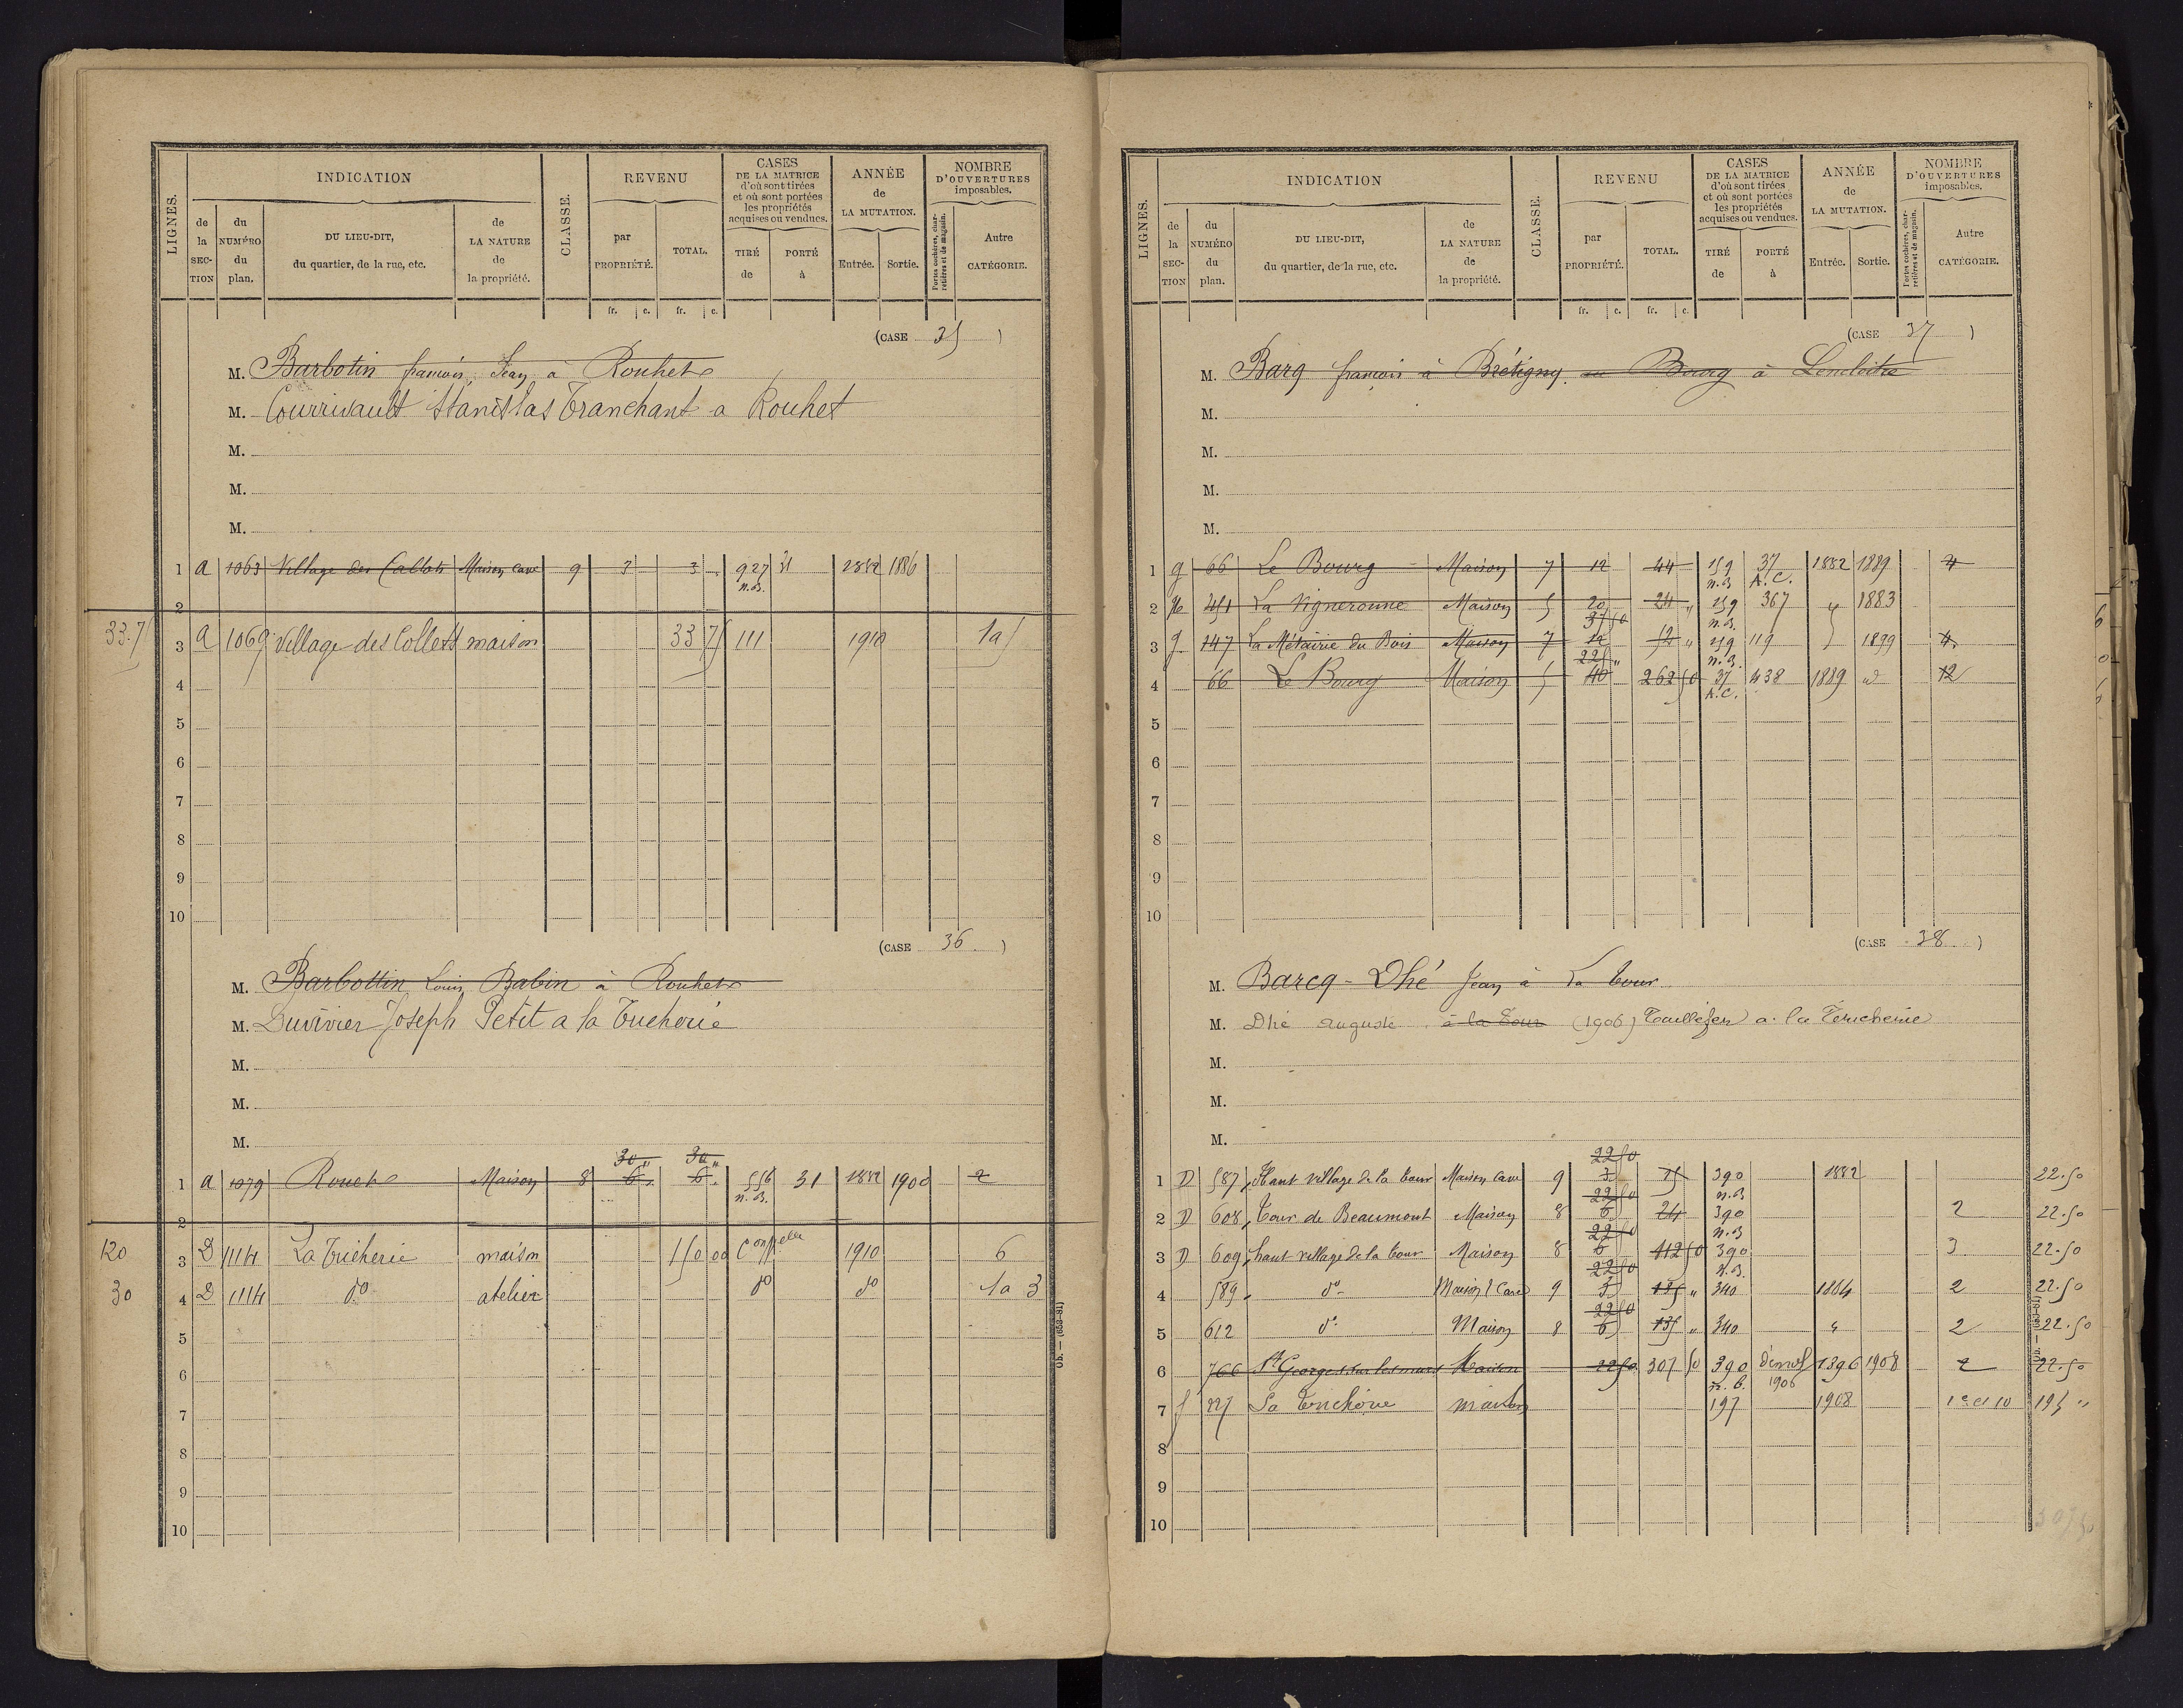 LIGNES. INDICATION CLASSE. REVENU CASES DE LA MATRICE d'où sont tirées et où sont portées les propriétés acquises ou vendues. ANNÉE de LA MUTATION. NOMBRE D'OUVERTURES imposables.
de la SECTION du NUMÉRO du plan. DU LIEU-DIT, du quartier, de la rue, etc. de LA NATURE de la propriété. par PROPRIÉTÉ. TOTAL. TIRÉ de PORTÉ à Entrée. Sortie. Portes cochères, charretières et de magasin. Autre CATÉGORIE.
fr. c. fr. c.
(CASE 35 )
M. Barbotin françois, Jean à Rouhet
M. Courrivault Stanislas Tranchant a Rouhet
M.
M.
M.
1 A 1063 Village des Collets Maison cave 9 3 3 927 n.B. 31 1882 1886
2
33.75 3 A 1069 Village des Collets maison 33 75 111 1910 1a5
4
5
6
7
8
9
10
(CASE 36 )
M. Barbottin Louis Babin à Rouhet
M. Duvivier Joseph Petit a la Tricherie
M.
M.
M.
30 " 30 "
1 A 1079 Rouet Maison 8 6 6 556 n.B. 31 1882 1900 2
2
120 3 D 1114 La Tricherie maison 150 00 1910 6
30 4 D 1114 do atelier do do 1a 3
5
6
7
8
9
10
LIGNES. INDICATION CLASSE. REVENU CASES DE LA MATRICE d'où sont tirées et où sont portées les propriétés acquises ou vendues. ANNÉE de LA MUTATION. NOMBRE D'OUVERTURES imposables.
de la SECTION du NUMÉRO du plan. DU LIEU-DIT, du quartier, de la rue, etc. de LA NATURE de la propriété. par PROPRIÉTÉ. TOTAL. TIRÉ de PORTÉ à Entrée. Sortie. Portes cochères, charretières et de magasin. Autre CATÉGORIE.
fr. c. fr. c.
(CASE 37 )
M. Barq françois à Brétigny au Bourg à Lencloitre
M.
M.
M.
M.
1 g 66 Le Bourg Maison 7 12 44 159 n.B 37 A.C. 1882 1889 4
2 451 La Vigneronne Maison 5 20 24 " 159 n.B. 367 " 1883
37 50
3 g 147 La Métairie du Bois Maison 7 12 12 " 159 n.B. 119 1899 4
225 "
4 66 Le Bourg Maison 5 40 262 50 37 A.C. 438 1889 12
5
6
7
8
9
10
(CASE 38 )
M. Barcq - Dhé Jean à La tour
M. Dhé Auguste à la Tour (1906) Taillefer a la Tricherie
M.
M.
M.
22 50
1 D 587 Haut village de la tour Maison Cave 9 3 15 390 n.B 1882 22.50
22 50
2 D 608 Tour de Beaumont Maison 8 6 24 390 n.B 2 22.50
22 50
3 D 609 haut village de la tour Maison 8 6 112 50 390 n.B. 3 22.50
22 50
4 589 do Maison & Cave 9 3 135 " 340 1884 2 22.50
22 50
5 612 do Maison 8 6 135 " 340 " 2 22.50
6 766 St Georges sur les murs Maison 22 50 307 50 390 n.B. démol 1906 1896 1908 2 22.50
7 f 227 La Tricherie maison 197 1908 1 et 10 195 "
8
9
10
307 50